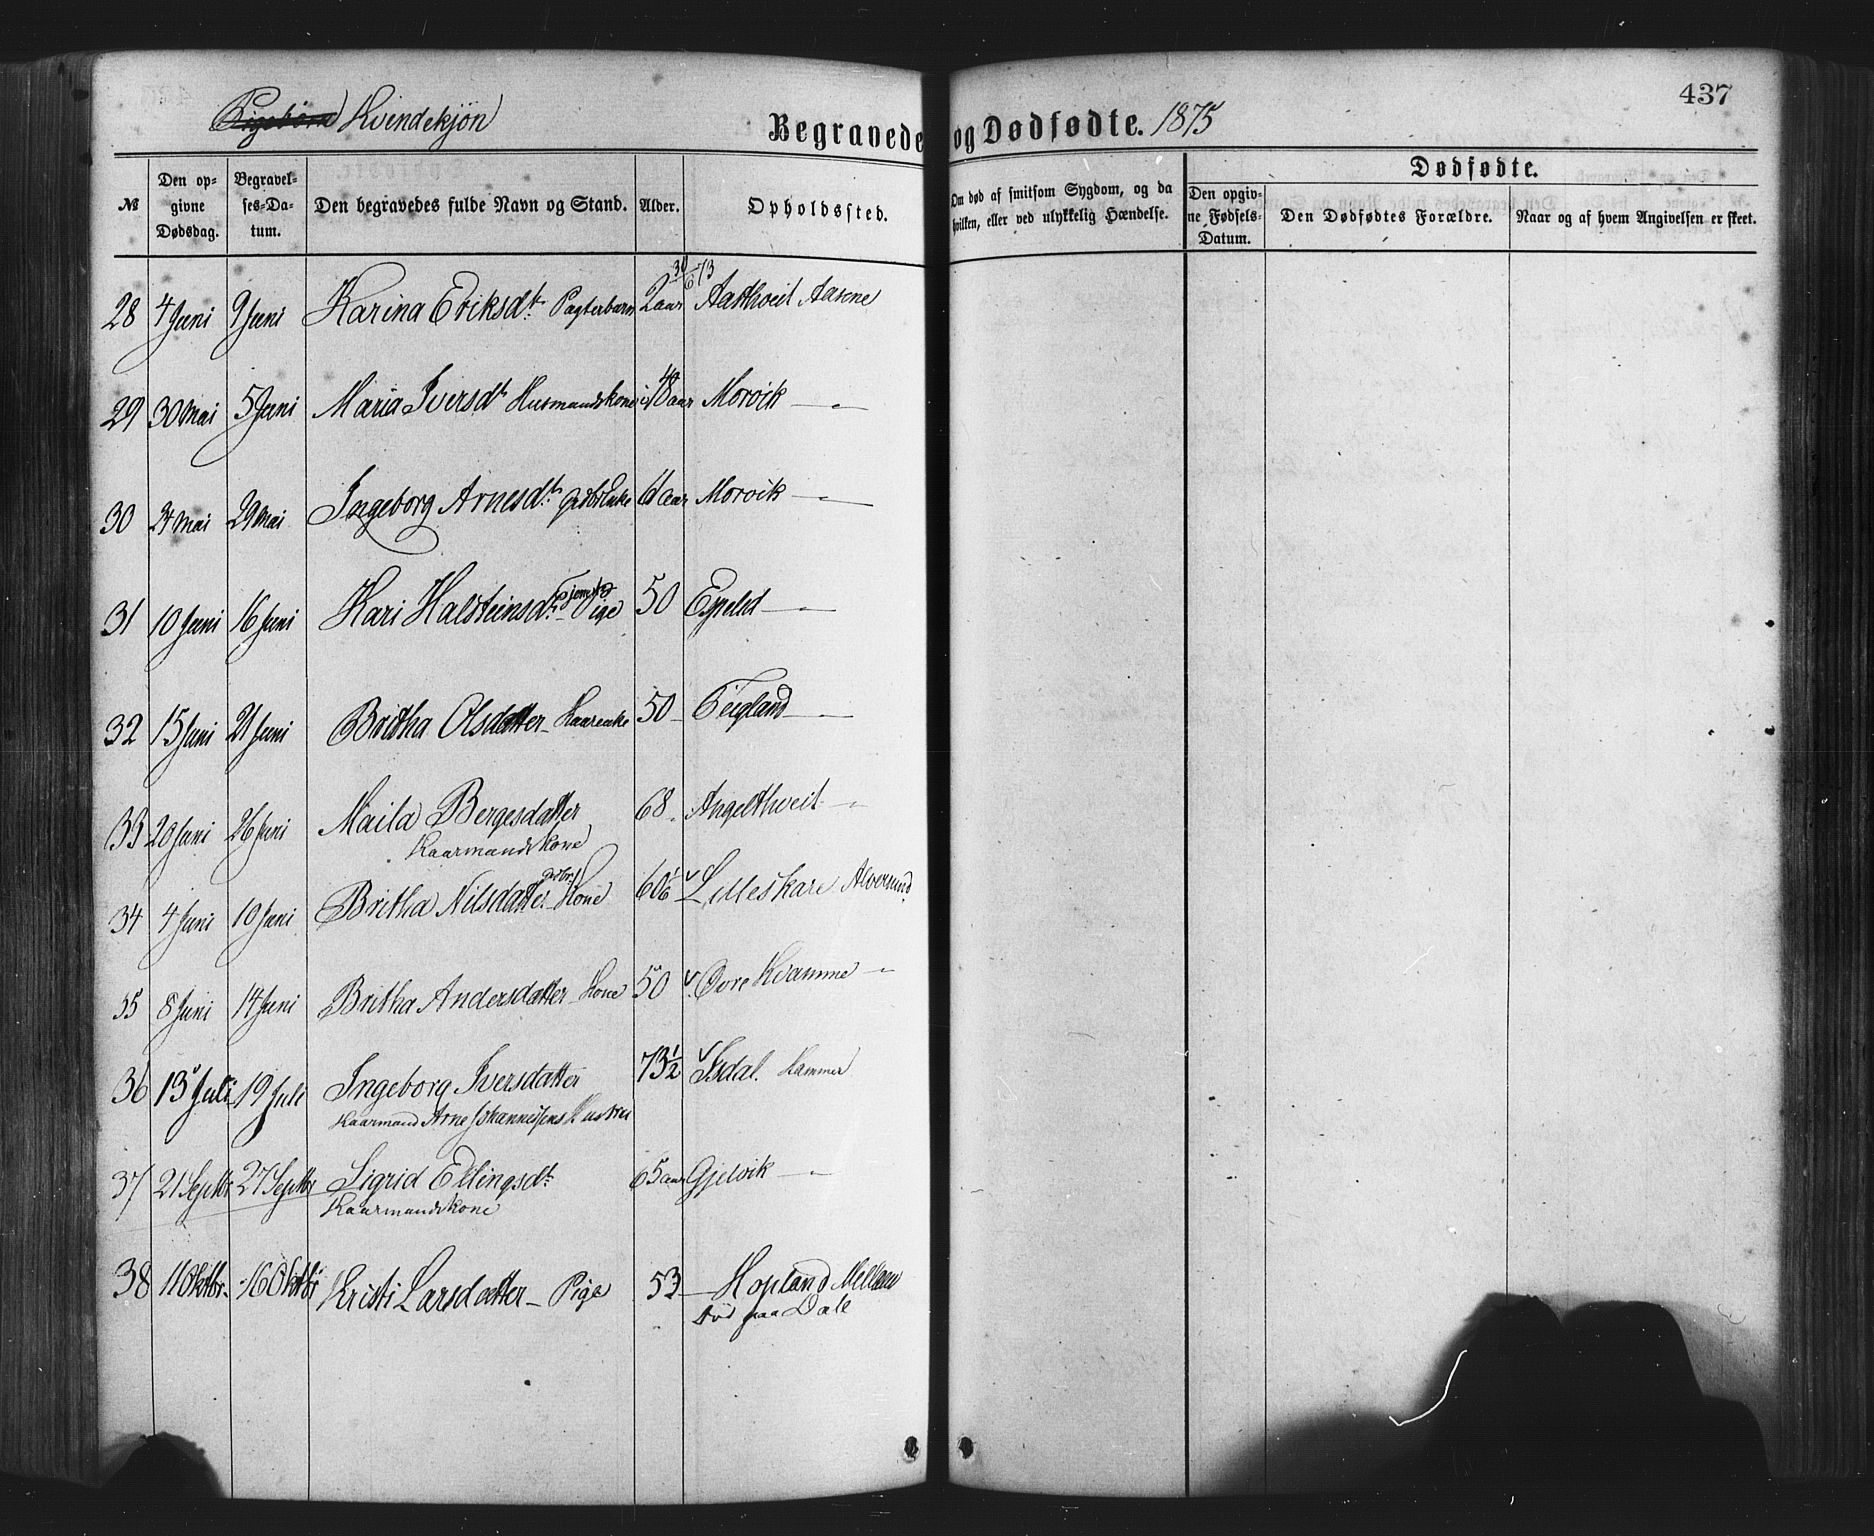 437
Pigebørn Kvindekjøn
Begravede og Dødfødte. 1875
Dødfødte.
№
Den opgivne Dødsdag.
Begravelses-Datum.
Den begravedes fulde Navn og Stand.
Alder.
Opholdssted.
Om død af smitsom Sygdom, og da hvilken, eller ved ulykkelig Hændelse.
Den opgivne Fødsels-Datum.
Den Dødfødtes Forældre.
Naar og af hvem Angivelsen er skeet.
28 4 Juni 9 Juni Karina Eriksdt. Pagterbarn 2 aar 30/6 73 Aasthveit Aasene
29 30 Mai 5 Juni Maria Iversdt. Husmandskone 48 aar Morvik — " —
30 24 Mai 29 Mai Ingeborg Arnesdt. 61 aar Morvik — " —
31 10 Juni 16 Juni Kari Halsteinsdt. Tjenest Pige 50 — " —
32 15 Juni 21 Juni Britha Olsdatter - Kaarenke 50 - Teigland — " —
33 20 Juni 26 Juni Maila Bergesdatter 68 " Angelthveit — " —
Kaarmandskone
34 4 Juni 10 Juni Britha Nilsdatter Kone 60 1/6 v Lilleskare Alversund
35 8 Juni 14 Juni Britha Andersdatter - Kone 50 v Øvre Kvamme — " —
36 13 Juli 19 Juli Ingeborg Iversdatter 73 1/2 v Isdal. Hammer
Kaarmand Arne Johannessens Hustru
37 21 Septbr 27 Septbr Sigrid Ellingsdt. 65 aar Gjelvik — " —
Kaarmandskone
38 11 Oktbr. 16 Oktbr Kristi Larsdatter - Pige 53 — Hopland Mellem
Død paa Dale